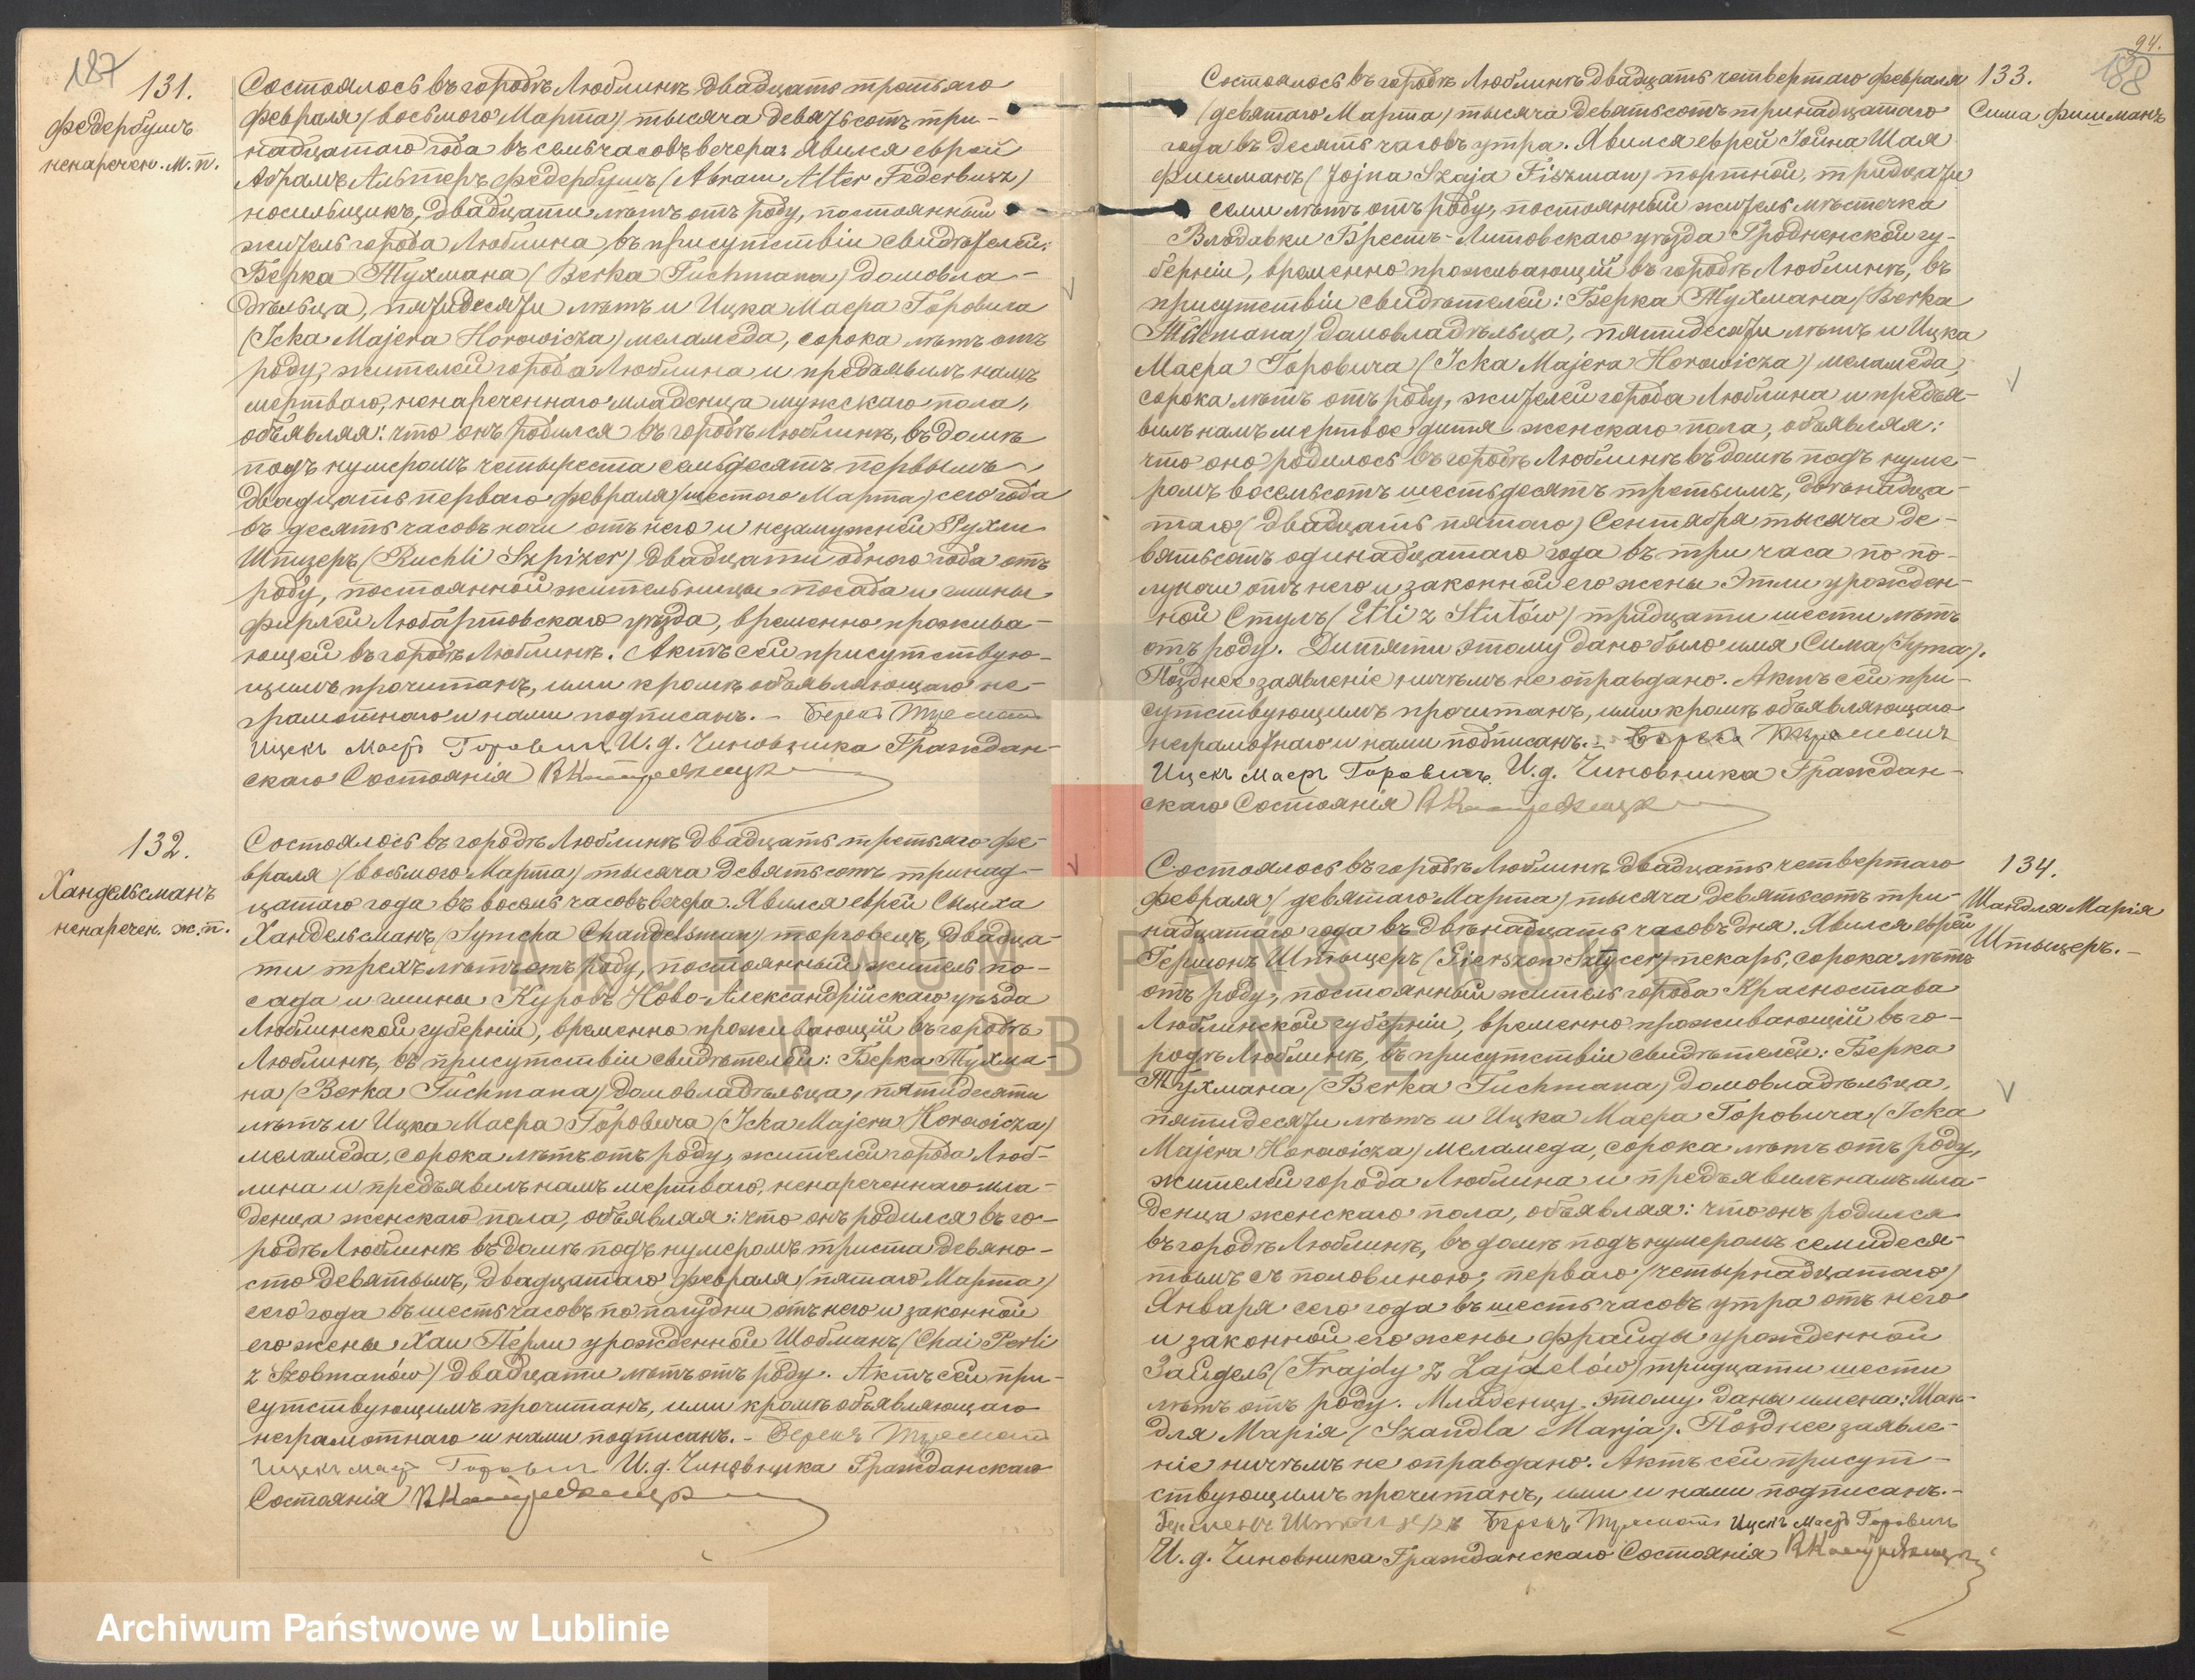 187
131.
Федербушъ
ненаречен. м. п.
Состоялось въ городѣ Люблинѣ двадцать третьяго
февраля (восьмого Марта) тысяча девятьсотъ три-
надцатаго года въ семь часовъ вечера. Явился еврей
Абрамъ Альтеръ Федербушъ (Abram Alter Federbusz)
носильщикъ, двадцати лѣтъ отъ роду, постоянный
житель города Люблина, въ присутствіи свидѣтелей:
Берка Тухмана (Berka Tuchmana) домовла-
дѣльца, пятидесяти лѣтъ и Ицка Маера Горовича
(Icka Majera Horowicza) меламеда, сорока лѣтъ отъ
роду, жителей города Люблина и предъявилъ намъ
мертваго, ненареченнаго младенца мужскаго пола,
объявляя: что онъ родился въ городѣ Люблинѣ, въ домѣ
подъ нумеромъ четыреста семьдесятъ первымъ,
двадцать перваго февраля (шестого Марта) сего года
въ десять часовъ ночи отъ него и незамужней Рухли
Шпизеръ (Ruchli Szpizer) двадцати одного года отъ
роду, постоянной жительницы посада и гмины
Фирлей Любартовскаго уѣзда, временно прожива-
ющей въ городѣ Люблинѣ. Актъ сей присутствую-
щимъ прочитанъ, ими кромѣ объявляющаго не-
грамотнаго и нами подписанъ. - Берекъ Тухманъ
Ицекъ Маеръ Горовичъ И. д. Чиновника Граждан-
скаго Состоянія
132.
Хандельсманъ
ненаречен. ж. п.
Состоялось въ городѣ Люблинѣ двадцать третьяго фе-
враля (восьмого Марта) тысяча девятьсотъ тринад-
цатаго года въ восемь часовъ вечера. Явился еврей Сымха
Хандельсманъ (Symcha Chandelsman) торговецъ, двадца-
ти трехъ лѣтъ отъ роду, постоянный житель по-
сада и гмины Куровъ Ново-Александрійскаго уѣзда
Люблинской губерніи, временно проживающій въ городѣ
Люблинѣ, въ присутствіи свидѣтелей: Берка Тухма-
на (Berka Tuchmana) домовладѣльца, пятидесяти
лѣтъ и Ицка Маера Горовича (Icka Majera Horowicza)
меламеда, сорока лѣтъ отъ роду, жителей города Люб-
лина и предъявилъ намъ мертваго, ненареченнаго мла-
денца женскаго пола, объявляя: что онъ родился въ го-
родѣ Люблинѣ въ домѣ подъ нумеромъ триста девяно-
сто девятымъ, двадцатаго февраля (пятаго Марта)
сего года въ шесть часовъ пополудни отъ него и законной
его жены Хаи Перли урожденной Шобманъ (Chai Perli
z Szobmanów) двадцати лѣтъ отъ роду. Актъ сей при-
сутствующимъ прочитанъ, ими кромѣ объявляющаго
неграмотнаго и нами подписанъ. - Берекъ Тухманъ
Ицекъ Маеръ Горовичъ И. д. Чиновника Гражданскаго
Состоянія
94.
188
133.
Сима Фишманъ
Состоялось въ городѣ Люблинѣ двадцать четвертаго февраля
(девятаго Марта) тысяча девятьсотъ тринадцатаго
года въ десять часовъ утра. Явился еврей Іойна Шая
Фишманъ (Jojna Szaja Fiszman) портной, тридцати
семи лѣтъ отъ роду, постоянный житель мѣстечка
Влодавки Брестъ-Литовскаго уѣзда Гродненской гу-
берніи, временно проживающій въ городѣ Люблинѣ, въ
присутствіи свидѣтелей: Берка Тухмана (Berka
Tuchmana) домовладѣльца, пятидесяти лѣтъ и Ицка
Маера Горовича (Icka Majera Horowicza) меламеда,
сорока лѣтъ отъ роду, жителей города Люблина и предъя-
вилъ намъ мертвое дитя женскаго пола, объявляя:
что оно родилось въ городѣ Люблинѣ въ домѣ подъ нуме-
ромъ восемьсотъ шестьдесятъ третьимъ, двѣнадца-
таго (двадцать пятаго) Сентября тысяча де-
вятьсотъ одинадцатаго года въ три часа по по-
луночи отъ него и законной его жены Этли урожден-
ной Стулъ (Etli z Stulów) тридцати шести лѣтъ
отъ роду. Дитяти этому дано было имя Сима (Syma).
Позднее заявленіе ничѣмъ не оправдано. Актъ сей при-
сутствующимъ прочитанъ, ими кромѣ объявляющаго
неграмотнаго и нами подписанъ. - Берекъ Тухманъ
Ицекъ Маеръ Горовичъ. И. д. Чиновника Граждан-
скаго Состоянія
134.
Шандля Марія
Штыцеръ. -
Состоялось въ городѣ Люблинѣ двадцать четвертаго
февраля (девятаго Марта) тысяча девятьсотъ три-
надцатаго года въ двѣнадцать часовъ дня. Явился еврей
Гершонъ Штыцеръ (Gierszon Sztycer) пекарь, сорока лѣтъ
отъ роду, постоянный житель города Красностава
Люблинской губерніи, временно проживающій въ го-
родѣ Люблинѣ, въ присутствіи свидѣтелей: Берка
Тухмана (Berka Tuchmana) домовладѣльца,
пятидесяти лѣтъ и Ицка Маера Горовича (Icka
Majera Horowicza) меламеда, сорока лѣтъ отъ роду,
жителей города Люблина и предъявилъ намъ мла-
денца женскаго пола, объявляя: что онъ родился
въ городѣ Люблинѣ, въ домѣ подъ нумеромъ семидеся-
тымъ съ половиною, перваго (четырнадцатаго)
Января сего года въ шесть часовъ утра отъ него
и законной его жены Фрайды урожденной
Зайдель (Frajdy z Zajdelów) тридцати шести
лѣтъ отъ роду. Младенцу этому даны имена: Шан-
для Марія (Szandla Marja). Позднее заявле-
ніе ничѣмъ не оправдано. Актъ сей присут-
ствующимъ прочитанъ, ими и нами подписанъ. -
Берекъ Тухманъ Ицекъ Маеръ Горовичъ
И. д. Чиновника Гражданскаго Состоянія
ARCHIWUM PAŃSTWOWE
W LUBLINIE
Archiwum Państwowe w Lublinie